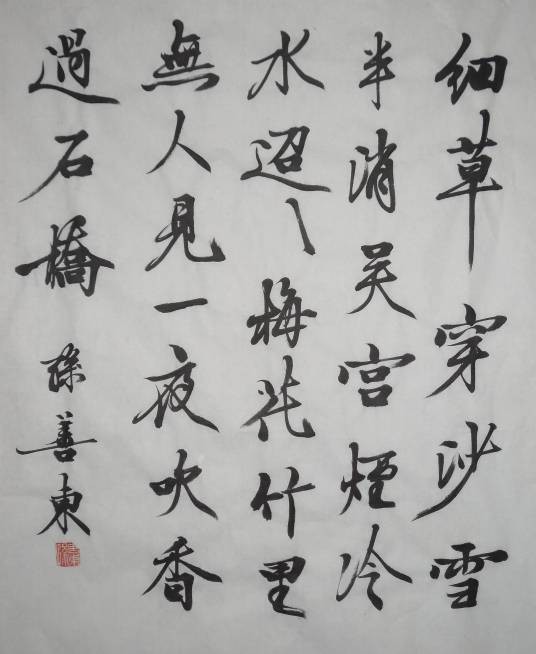 细草穿沙雪
半消吴宫煙冷
水迢〻梅花竹里
無人見一夜吹香
過石橋
孫善東